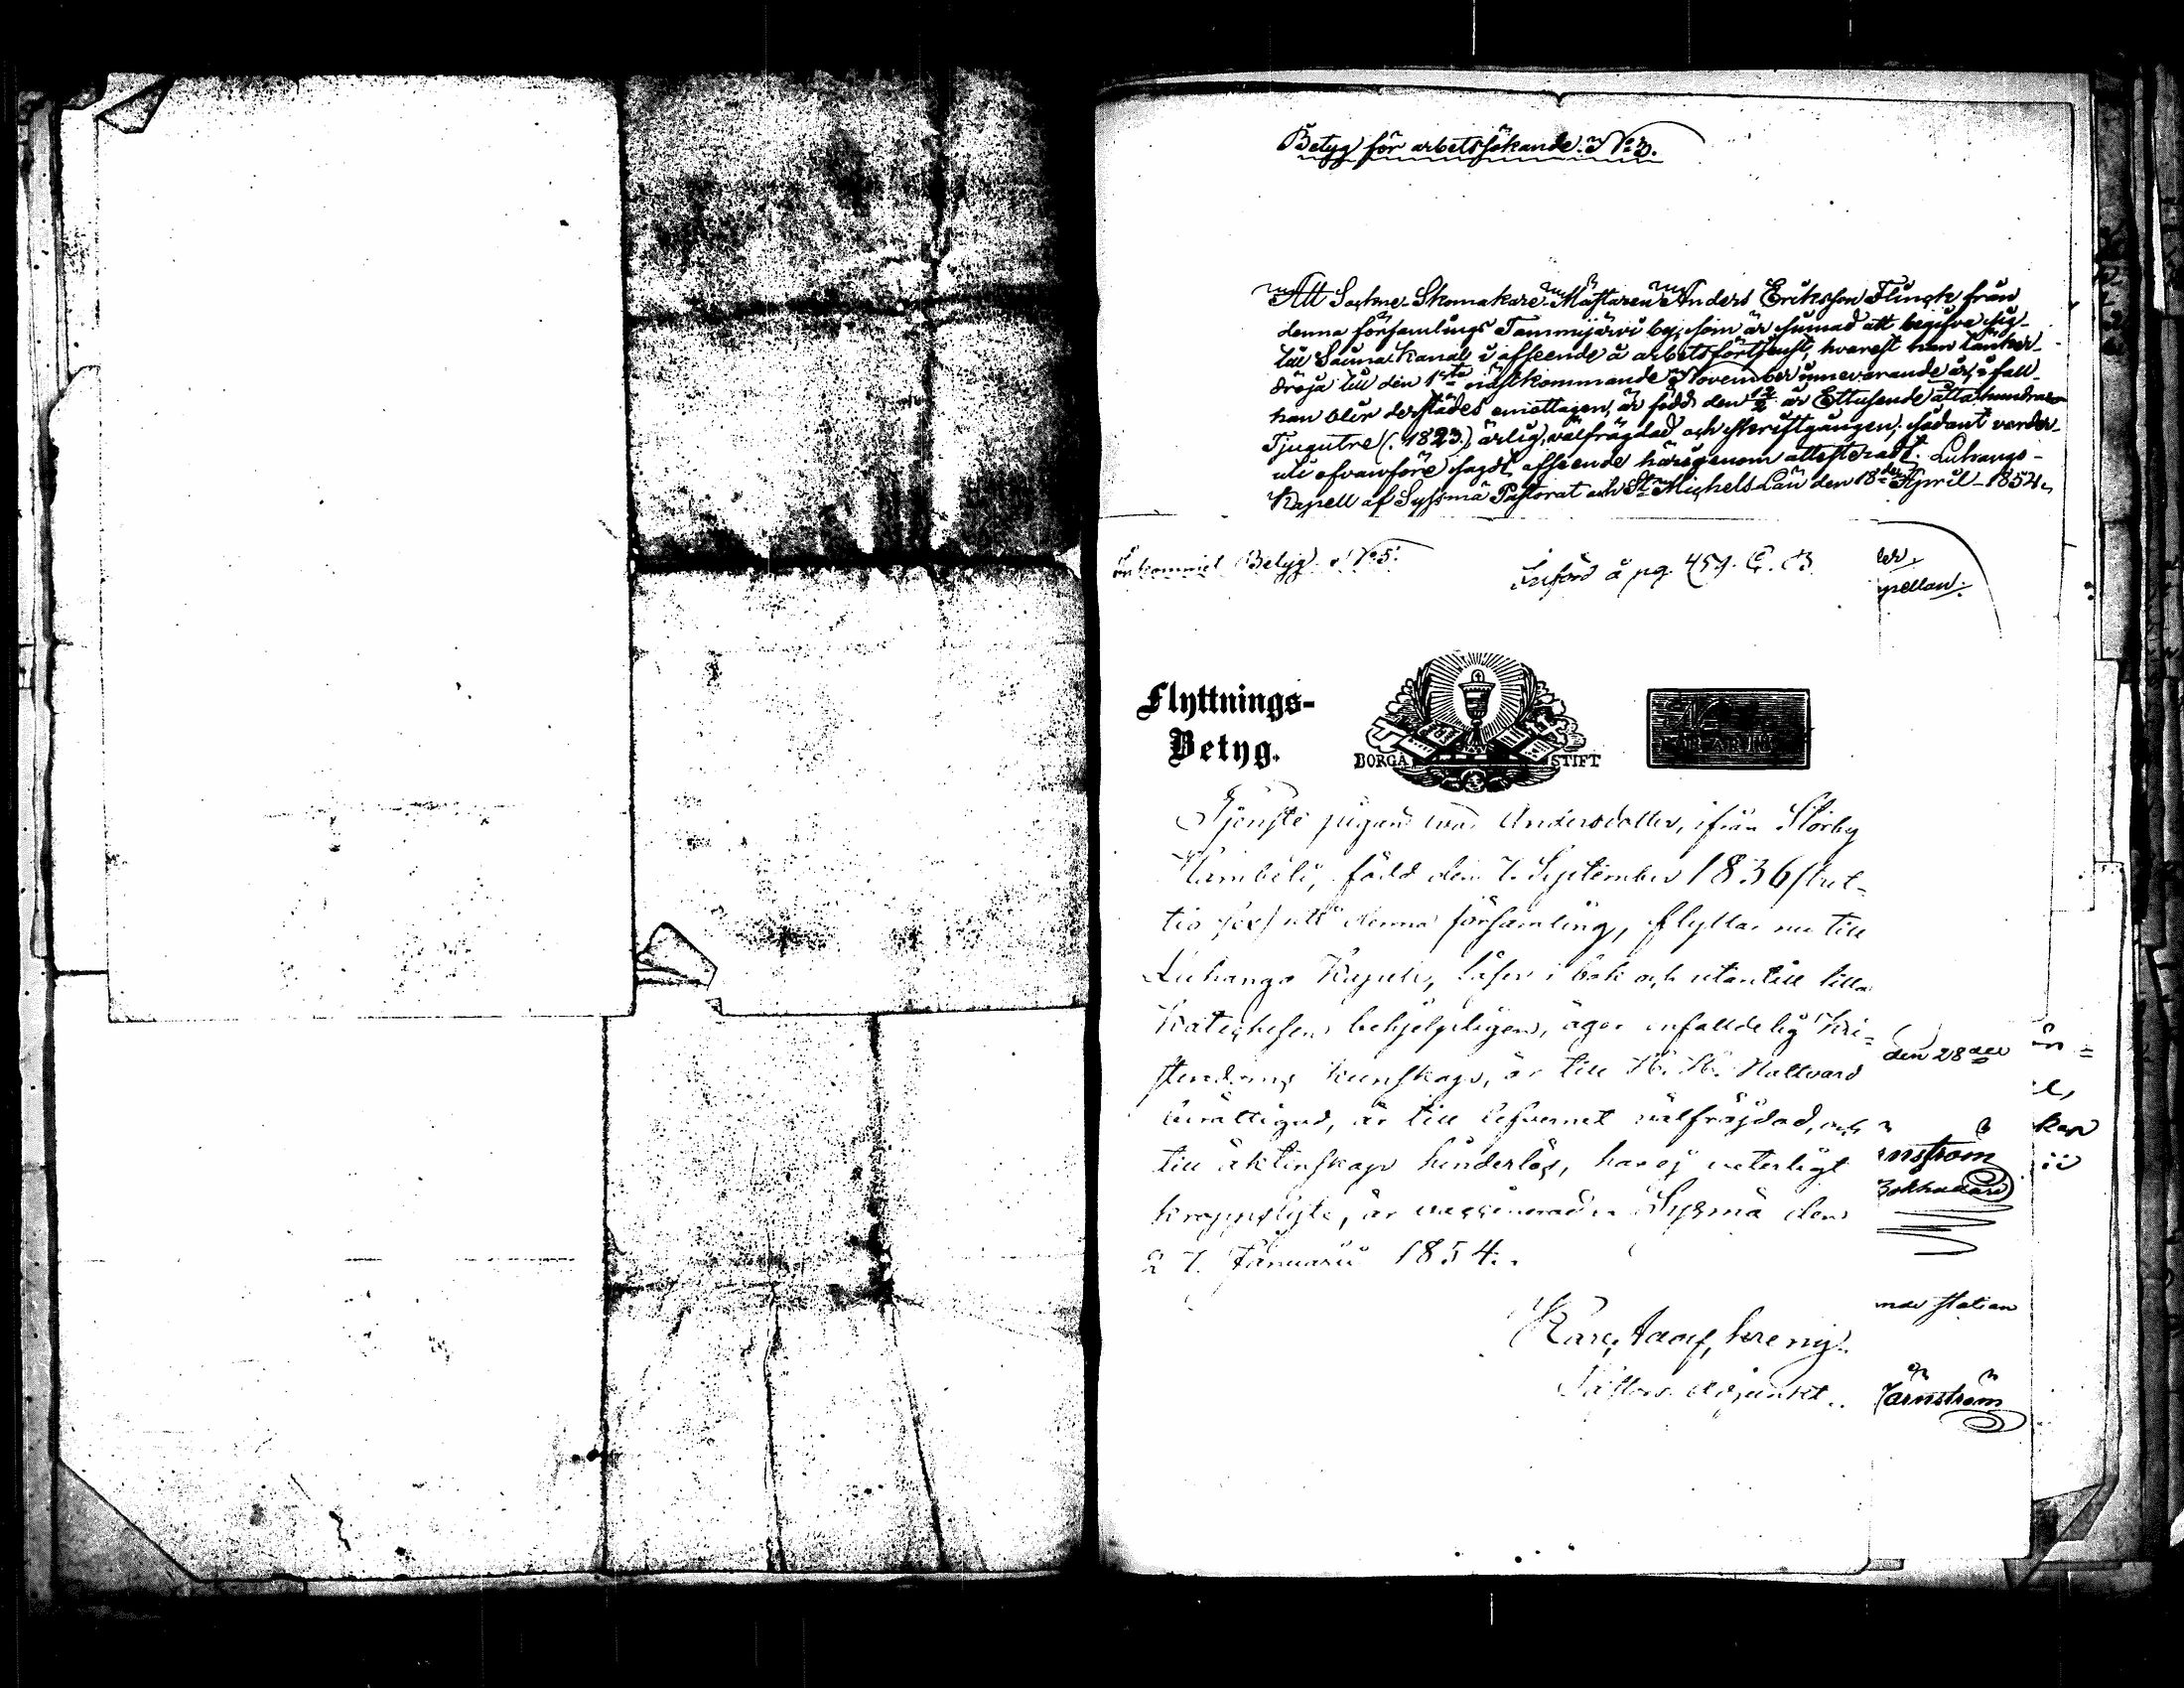 Betyg för arbetssökande. No 3.
Att Sockne-Skomakare-Mästaren Anders Eriksson Flinck från
denna församlings Tammijärvi by, som är sinnad att begifva sig
till Saima Kanal i afseende å arbetsförtjenst, hvarest han tänker
dröja till den 1sta nästkommande November innevarande år, ifall
han blir derstädes emottagen, är född den 12/2 år Ettusende åttahundra
Tjugutre (1823.) ärlig, välfrägdad och skriftgången; sådant varder
uti ofvanföre sagdt afseende härigenom attesteradt. Luhango
Kapell af Sysmä Pastorat och St Michels Län den 18de April 1854.
Ankommit Betyg No 5.
Införd å pg. 459. C. B
ler
pellan.
Flyttnings-
Betyg.
BORGÅ STIFT
Tjenste pigan Eva Andersdotter, ifrån Storby
född den 7. September 1836 /tret-
tio sex/ uti denna församling, flyttar nu till
Luhango Kapell, läser i bok och utantill lilla
Katechesen behjelpligen, äger enfaldelig Kri-
stendoms kunskap, är till H. H. Nattvard
berättigad, är till lefvernet välfräjdad, och
till äktenskap hinderlös, har ej veterligt
kroppslyte, är vaccinerad. Sysmä den
27. Januarii 1854.
Karl Adolf
Pastors Adjunkt.
den 28de
kap
nström
mar station
Järnström